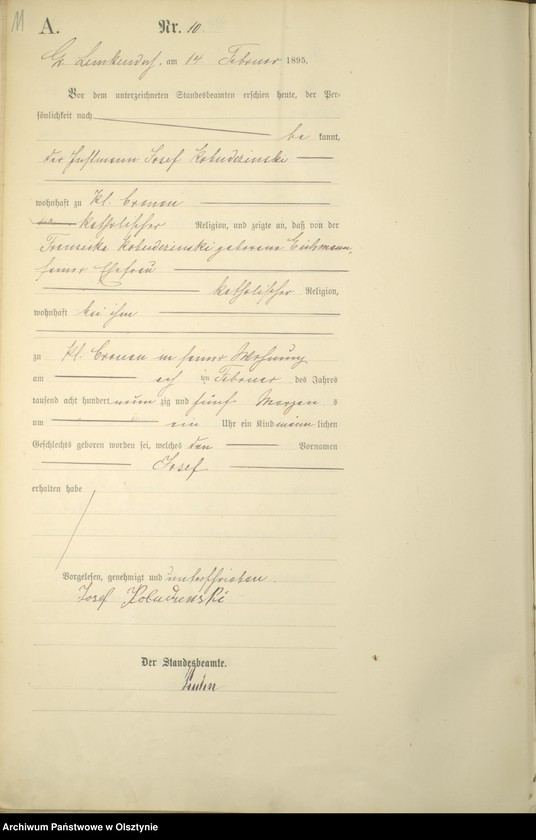 11
A. Nr. 10.
Gr. Lemkendorf, am 14 Februar 1895.
Vor dem unterzeichneten Standesbeamten erschien heute, der Per-
sönlichkeit nach
be kannt,
der Instmann Josef Kobudzinski
wohnhaft zu Kl. Cronau
katholischer Religion, und zeigte an, daß von der
Franziska Kobudzinski geborene Eichmann,
seiner Ehefrau
katholischer Religion,
wohnhaft bei ihm
zu Kl. Cronau in seiner Wohnung
am Februar des Jahres
tausend acht hundert neun zig und fünf Morgens
um ein Uhr ein Kind männlichen
Geschlechts geboren worden sei, welches den Vornamen
Josef
erhalten habe
Vorgelesen, genehmigt und unterschrieben.
Josef
Der Standesbeamte.